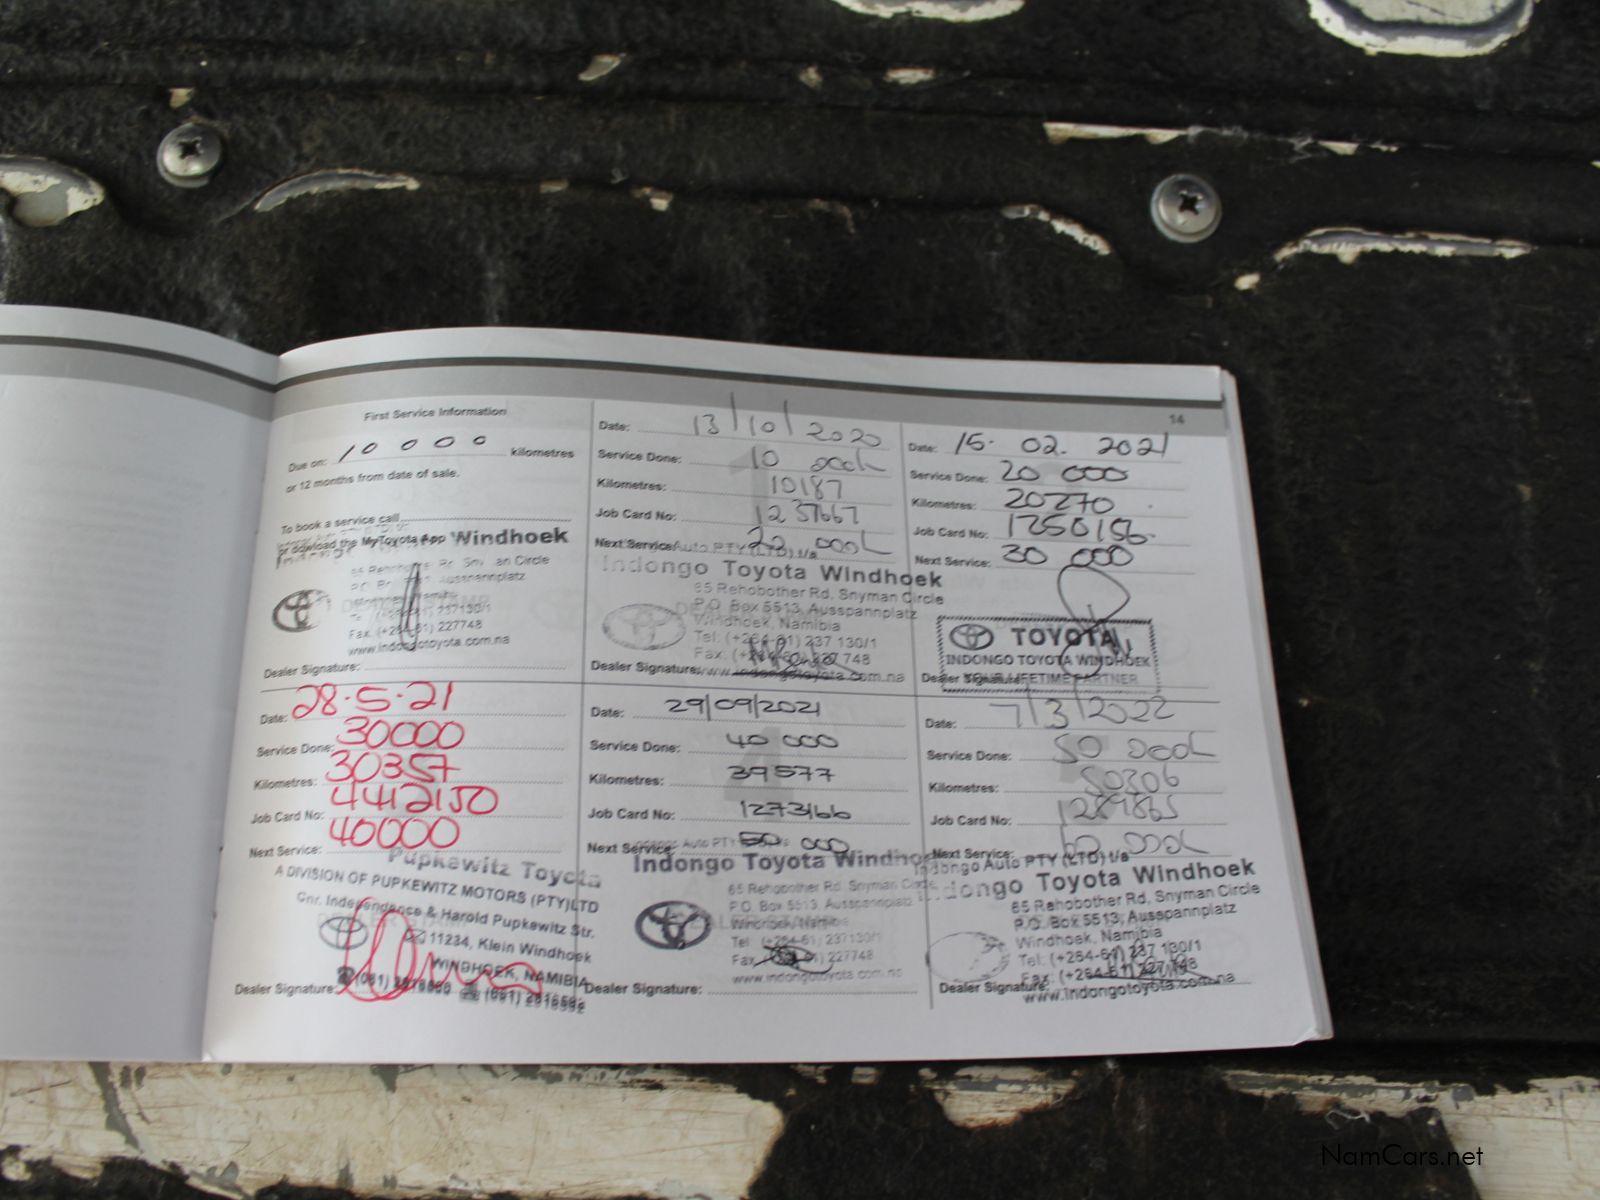 14
First Service Information
Due on: 10 000 kilometres
or 12 months from date of sale.
To book a service call
or download the MyToyota App
Windhoek
P.O. Box Ausspannplatz
Fax: (+264-61) 227748
www.indongotoyota.com.na
Dealer Signature:
Date: 13/10/2020
Service Done: 10 000k
Kilometres: 10187
Job Card No: 1237667
Next Service: 20 000k
Auto PTY (LTD) t/a
Indongo Toyota Windhoek
65 Rehobother Rd, Snyman Circle
P.O. Box 5513, Ausspannplatz
Windhoek, Namibia
Tel: (+264-61) 237 130/1
Fax: (+264-61) 227 748
www.indongotoyota.com.na
Dealer Signature:
Date: 15. 02. 2021
Service Done: 20 000
Kilometres: 20270
Job Card No: 1250156
Next Service: 30 000
TOYOTA
INDONGO TOYOTA WINDHOEK
YOUR LIFETIME PARTNER
Dealer Signature:
Date: 28.5.21
Service Done: 30000
Kilometres: 30357
Job Card No: 4412150
Next Service: 40000
Pupkewitz Toyota
A DIVISION OF PUPKEWITZ MOTORS (PTY)LTD
Cnr. Independence & Harold Pupkewitz Str.
11234, Klein Windhoek
WINDHOEK, NAMIBIA
Dealer Signature:
Date: 29/09/2021
Service Done: 40 000
Kilometres: 39577
Job Card No: 1273166
Next Service: 50 000
Indongo Toyota Windhoek
65 Rehobother Rd, Snyman Circle
P.O. Box 5513, Ausspannplatz
Windhoek, Namibia
Tel (+264-61) 237130/1
Fax (+264-61) 227748
www.indongotoyota.com.na
Dealer Signature:
Date: 7/3/2022
Service Done: 50 000k
Kilometres: 50306
Job Card No: 1289865
Next Service: 60 000k
Indongo Auto PTY (LTD) t/a
Indongo Toyota Windhoek
65 Rehobother Rd, Snyman Circle
P.O. Box 5513, Ausspannplatz
Windhoek, Namibia
Tel: (+264-61) 237 130/1
Fax: (+264-61) 227 748
www.indongotoyota.com.na
Dealer Signature:
NamCars.net